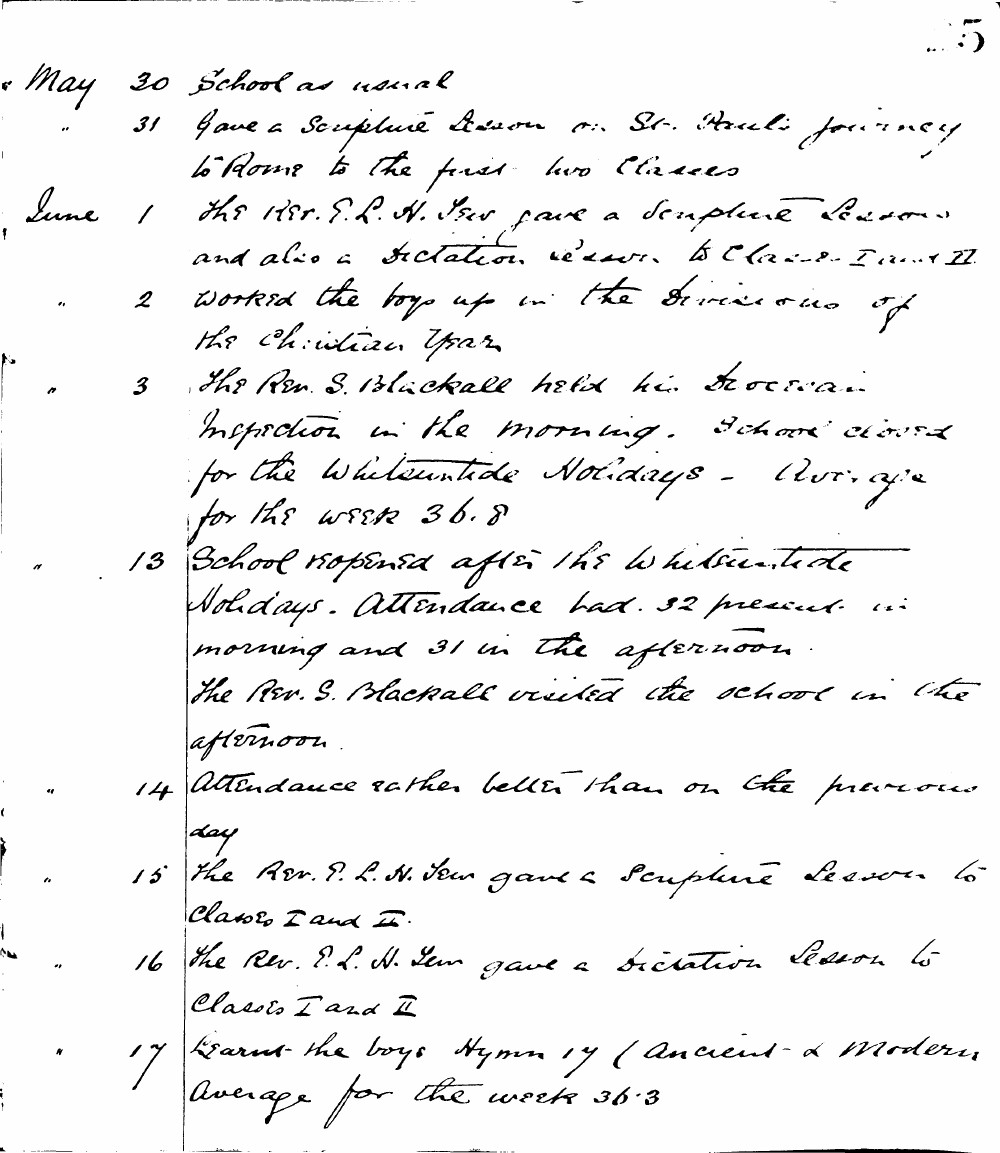 May 30 School as usual
" 31 Gave a Scripture Lesson on St. Paul's journey
to Rome to the first two Classes
June 1 The Rev. E. L. H. Tew gave a Scripture Lesson
and also a Dictation Lesson to Classes I and II
" 2 Worked the boys up in the Divisions of
the Christian Year
" 3 The Rev. S. Blackall held his Diocesan
Inspection in the morning. School closed
for the Whitsuntide Holidays - Average
for the week 36.8
" 13 School reopened after the Whitsuntide
Holidays. Attendance bad. 32 present in
morning and 31 in the afternoon.
The Rev. S. Blackall visited the school in the
afternoon.
" 14 Attendance rather better than on the previous
day
" 15 The Rev. E. L. H. Tew gave a Scripture Lesson to
Classes I and II.
" 16 The Rev. E. L. H. Tew gave a Dictation Lesson to
Classes I and II
" 17 Learnt the boys Hymn 17 (Ancient & Modern
Average for the week 36.3